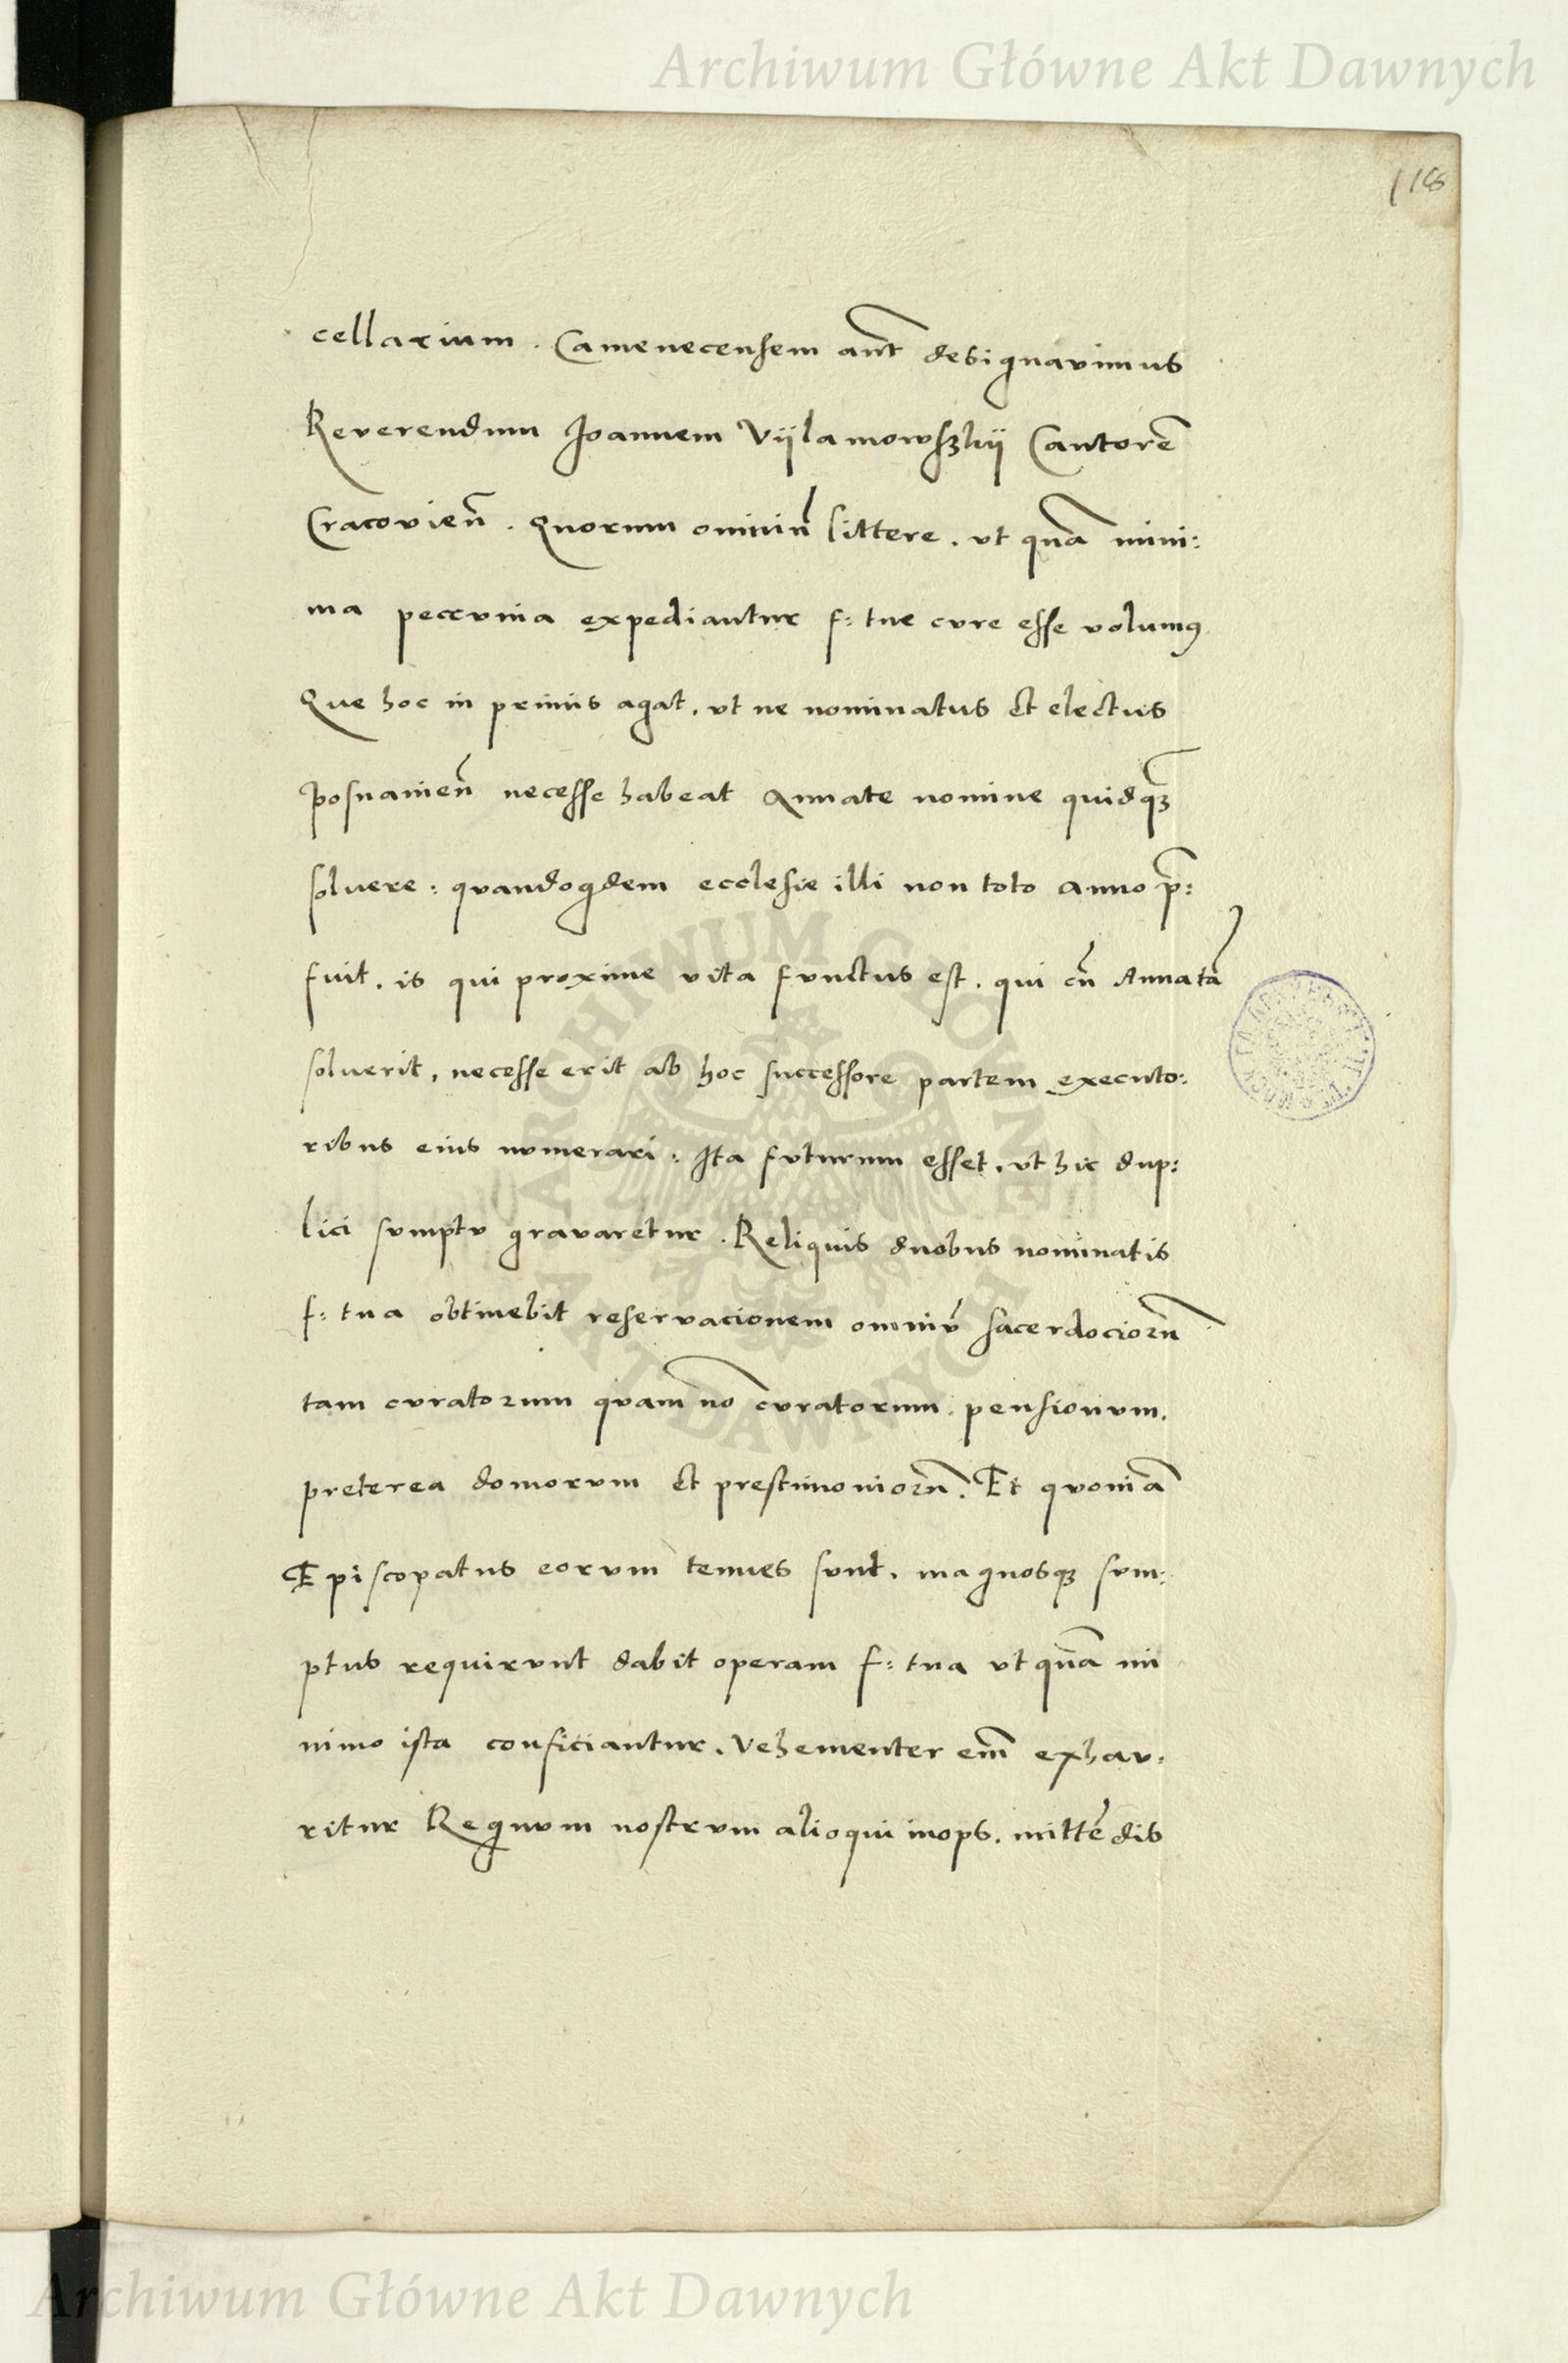 Archiwum Główne Akt Dawnych
118
cellarium. Camenecensem aut̄ designavimus
Reverendum Joannem Vijlamowszkij Cantorē
Cracovien̄. Quorum omniū littere. ut quā mini:
ma peccunia expediantur f: tue cure esse volumꝰ
Que hoc in primis agat, ut ne nominatus et electus
Posnanien̄ necesse habeat Annate nomine quidqꝫ̄
solvere: quandoqdem ecclesie illi non toto anno p̄:
fuit. is qui proxime vita functus est. qui cū Annatā
solverit, necesse erit ab hoc successore partem executo:
ribus eius numerari: Ita futurum esset. ut hic dup:
lici sumptu gravaretur. Reliquis duobus nominatis
f: tua obtinebit reservacionem omniū sacerdociorū
tam curatorum quam nō curatorum. pensionum.
preterea domorum et prestimoniorū. Et quoniā
Episcopatus eorum tenues sunt. magnosqꝫ sum:
ptus requirunt dabit operam f: tua ut quā mi
nimo ista conficiantur. Vehementer em̄ exhau:
ritur Regnum nostrum alioqui inops. mittēdis
ARCHIWUM GŁÓWNE
AKT DAWNYCH
Archiwum Główne Akt Dawnych